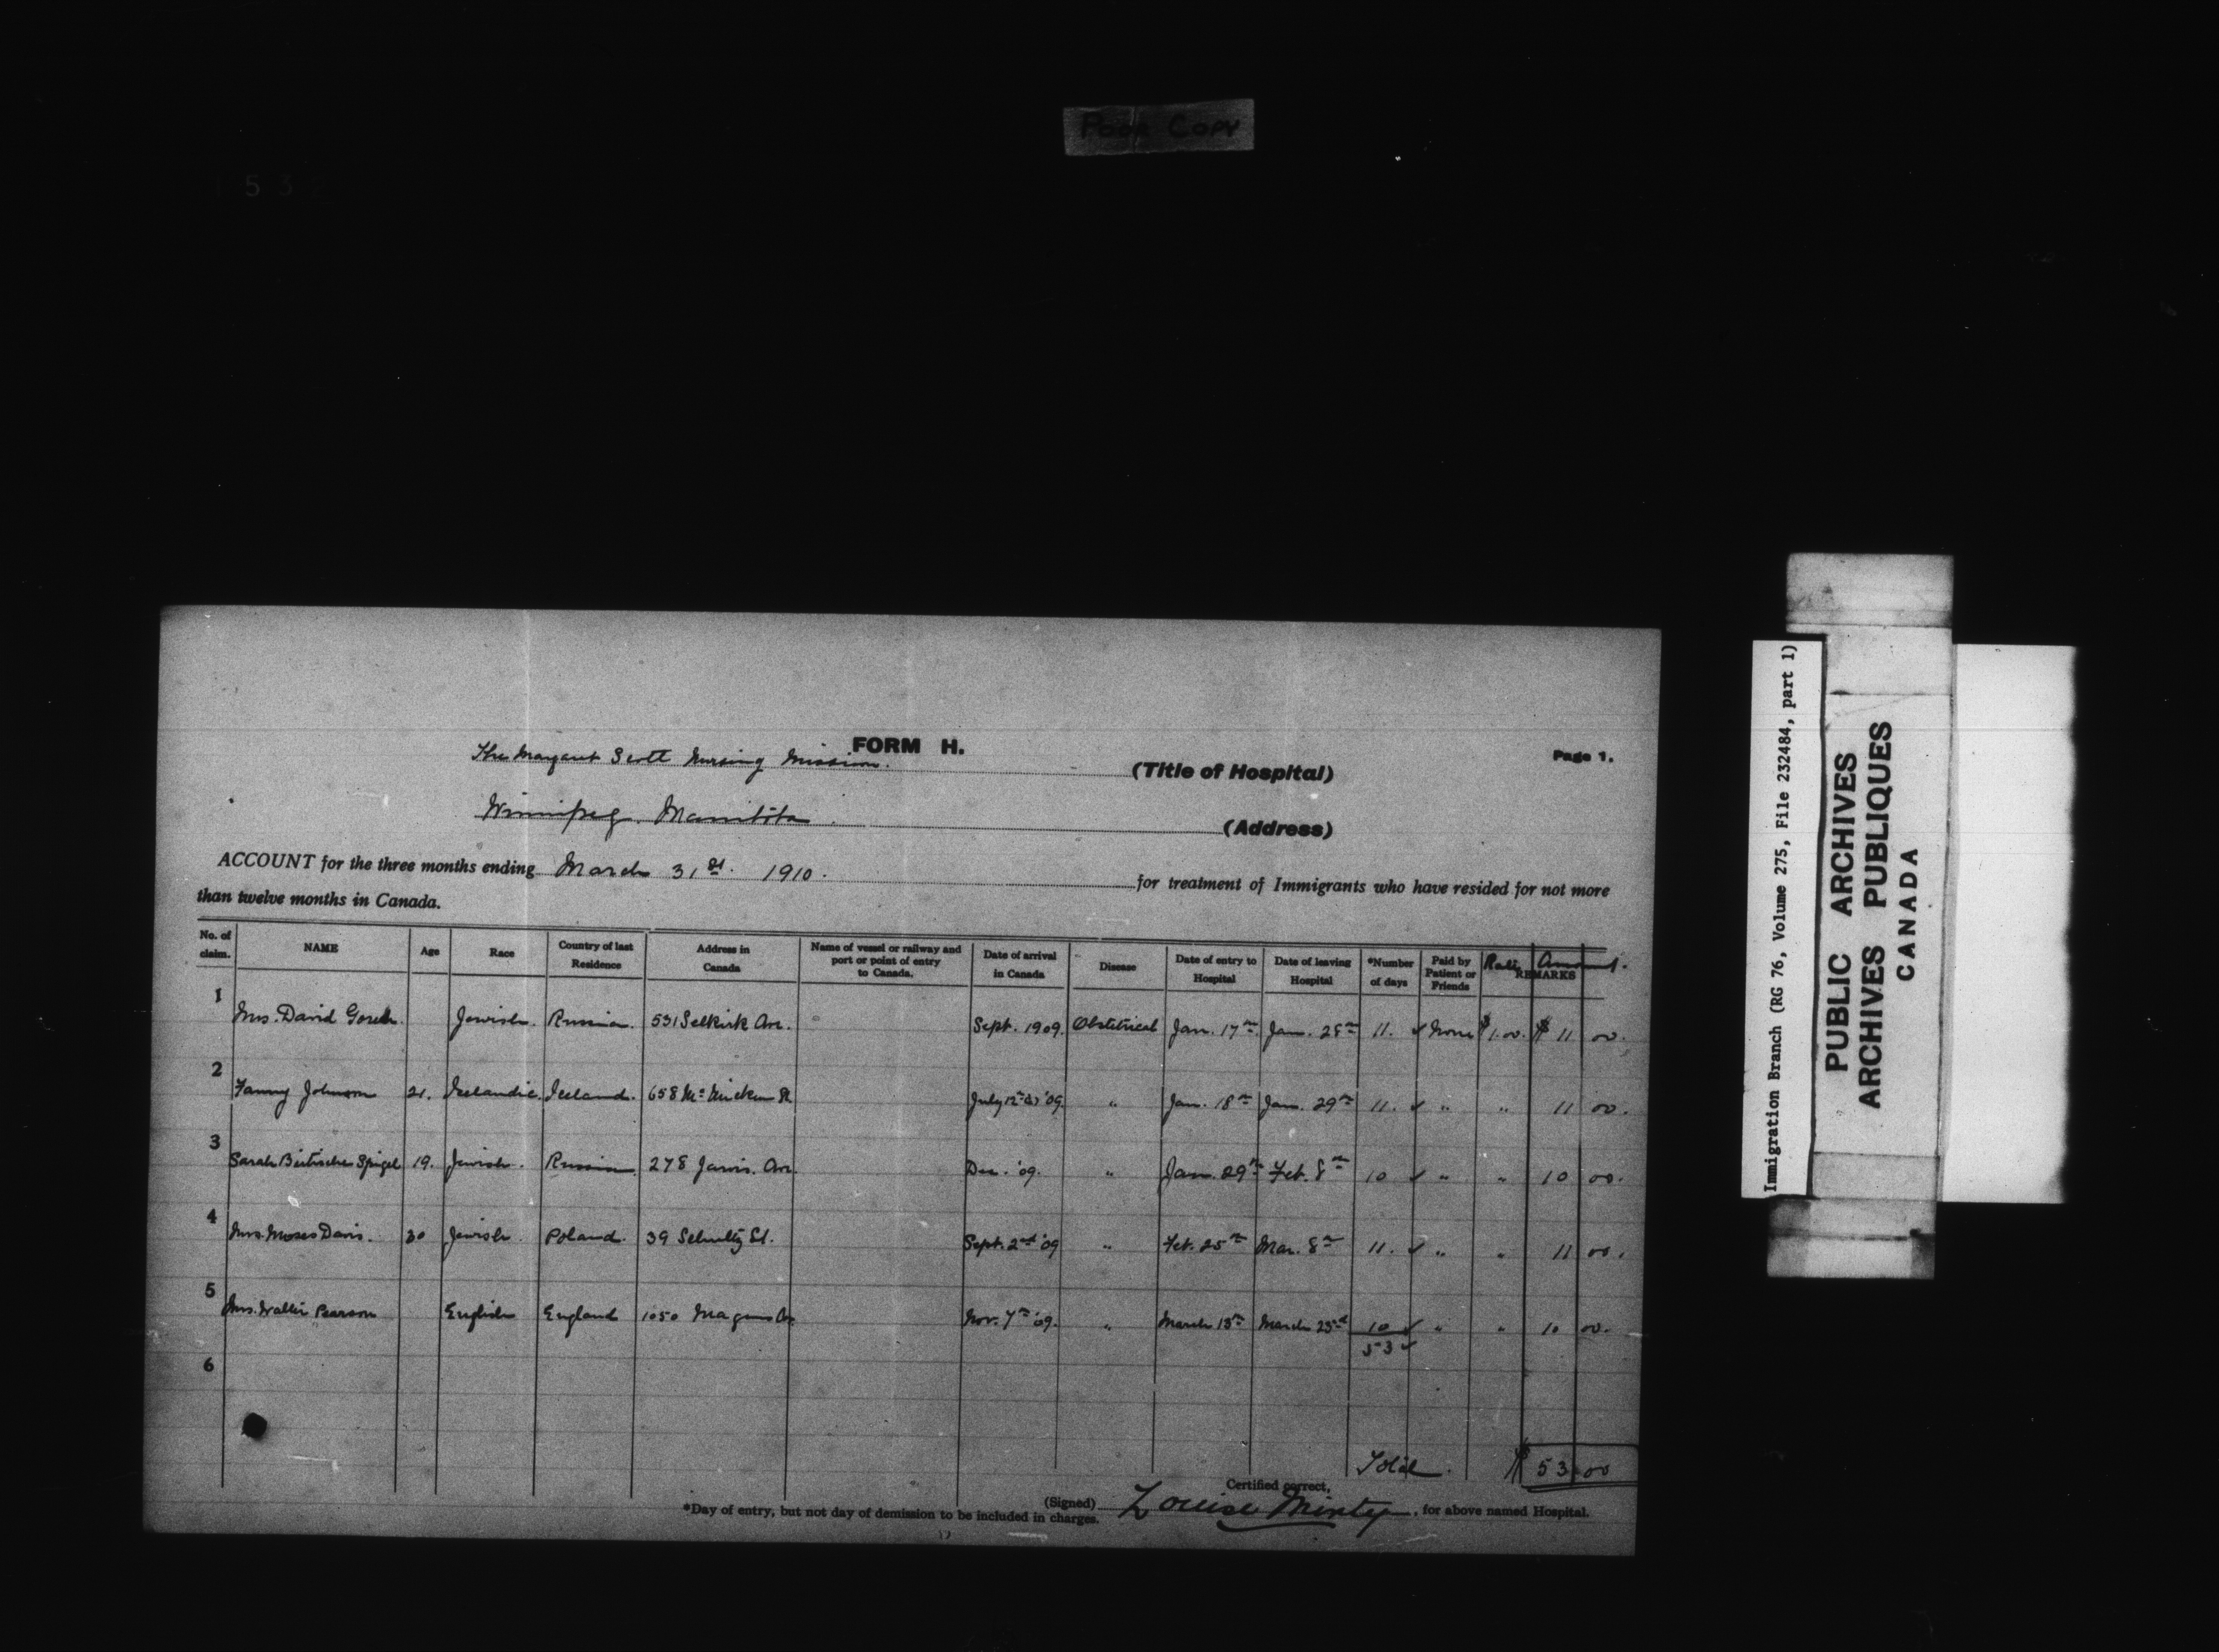 Poor Copy
5 3
FORM H.
Page 1.
The Margaret Scott Nursing Mission. (Title of Hospital)
Winnipeg. Manitoba. (Address)
ACCOUNT for the three months ending March 31st. 1910. for treatment of Immigrants who have resided for not more
than twelve months in Canada.
No. of claim. NAME Age Race Country of last Residence Address in Canada Name of vessel or railway and port or point of entry to Canada. Date of arrival in Canada Disease Date of entry to Hospital Date of leaving Hospital *Number of days Paid by Patient or Friends Rate REMARKS Amount.
1 Mrs. David Jewish. Russia. 531 Selkirk Ave. Sept. 1909. Obstetrical Jan. 17th Jan. 28th 11. ✓ None $1.00. $ 11 00.
2 Fanny Johnson 21. Icelandic. Iceland. 658 July 12th '09. " Jan. 18th Jan. 29th 11. ✓ " " 11 00.
3 Sarah Spigel 19. Jewish. Russia. 278 Jarvis. Ave. Dec. '09. " Jan. 29th Feb. 8th 10 ✓ " " 10 00.
4 Mrs. Moses Davis. 30 Jewish. Poland. 39 Schultz St. Sept. 2nd '09 " Feb. 25th Mar. 8th 11. ✓ " " 11 00.
5 Mrs. Walter Pearson English England 1050 Magnus Ave. Nov. 7th '09. " March 13th March 23rd 10 ✓ " " 10 00.
53 ✓
6
Total. $ 53 00
Certified correct,
*Day of entry, but not day of demission to be included in charges. (Signed) Louise Minty, for above named Hospital.
Immigration Branch (RG 76, Volume 275, File 232484, part 1)
PUBLIC ARCHIVES
ARCHIVES PUBLIQUES
CANADA